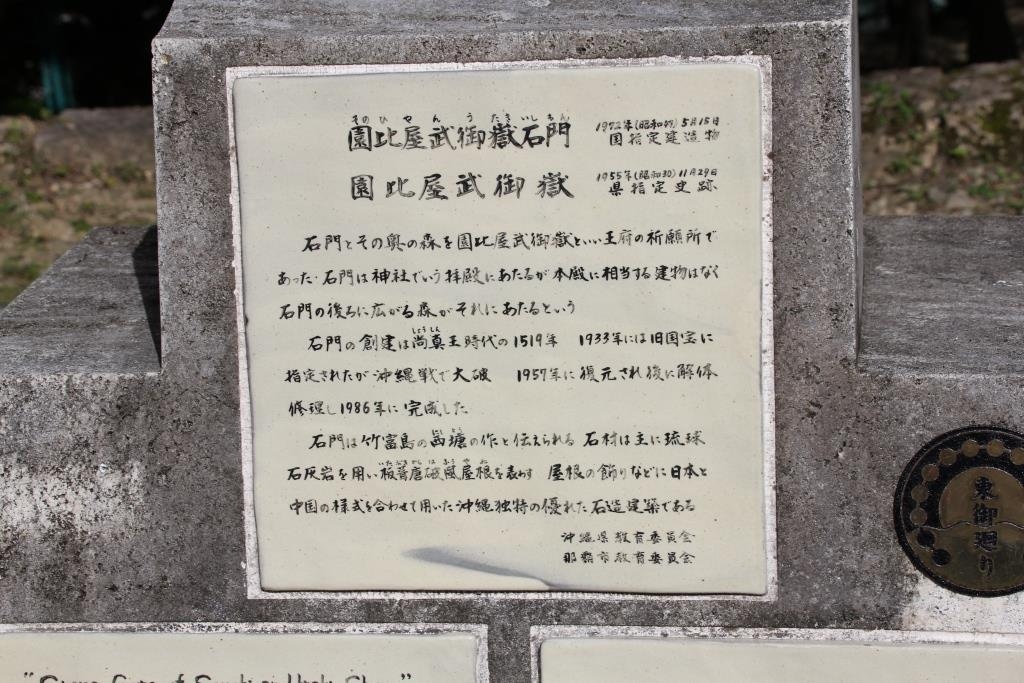 そのひやんうたきいしもん
園比屋武御嶽石門
1972年(昭和47)5月15日
国指定建造物
園比屋武御嶽
1955年(昭和30)11月29日
県指定史跡
石門とその奥の森を園比屋武御嶽といい王府の祈願所で
あった.石門は神社でいう拝殿にあたるが本殿に相当する建物はなく
石門の後ろに広がる森がそれにあたるという
しょうしん
石門の創建は尚真王時代の1519年 1933年には旧国宝に
指定されたが沖縄戦で大破 1957年に復元され後に解体
修理し1986年に完成した
石門は竹富島の西塘の作と伝えられる 石材は主に琉球
いたぶきからはふうやね
石灰岩を用い板葺唐破風屋根を表わす 屋根の飾りなどに日本と
中国の様式を合わせて用いた沖縄独特の優れた石造建築である
沖縄県教育委員会
那覇市教育委員会
東御廻り